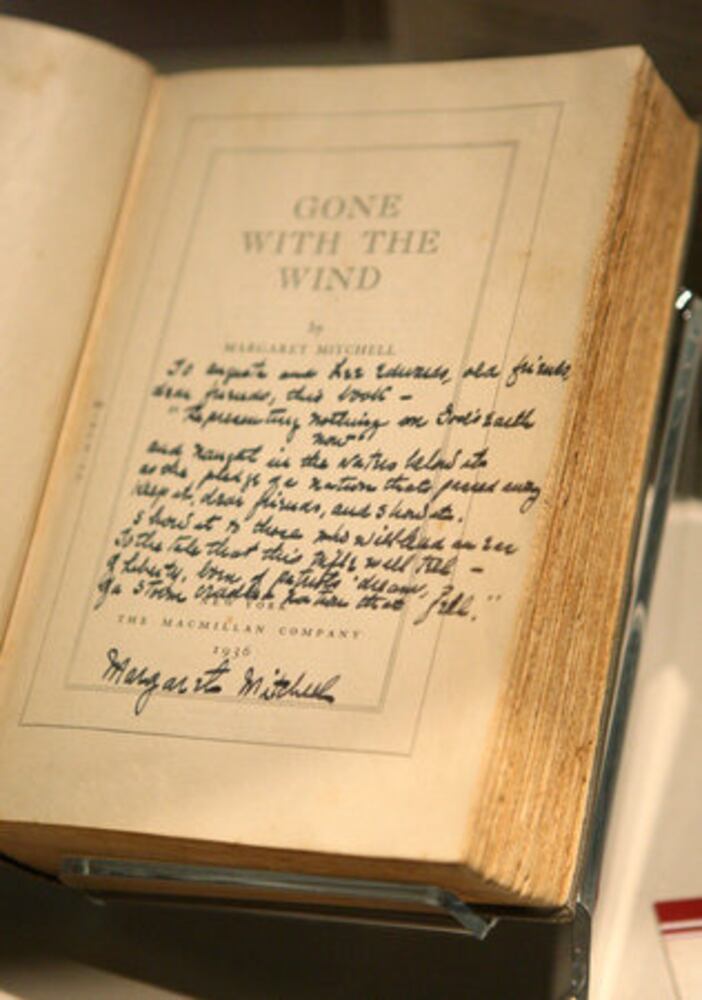 GONE
WITH THE
WIND
by
MARGARET MITCHELL
To Augusta and Lee Edwards, old friends,
dear friends, this book –
"Representing nothing on God's earth
now
and naught in the waters below it
as the pledge of a nation that passed away
Keep it, dear friends, and show it.
Show it to those who will lend an ear
To the tale that this trifle will tell –
Of liberty, born of patriots' dream,
Of a storm cradled nation that fell."
NEW YORK
THE MACMILLAN COMPANY
1936
Margaret Mitchell